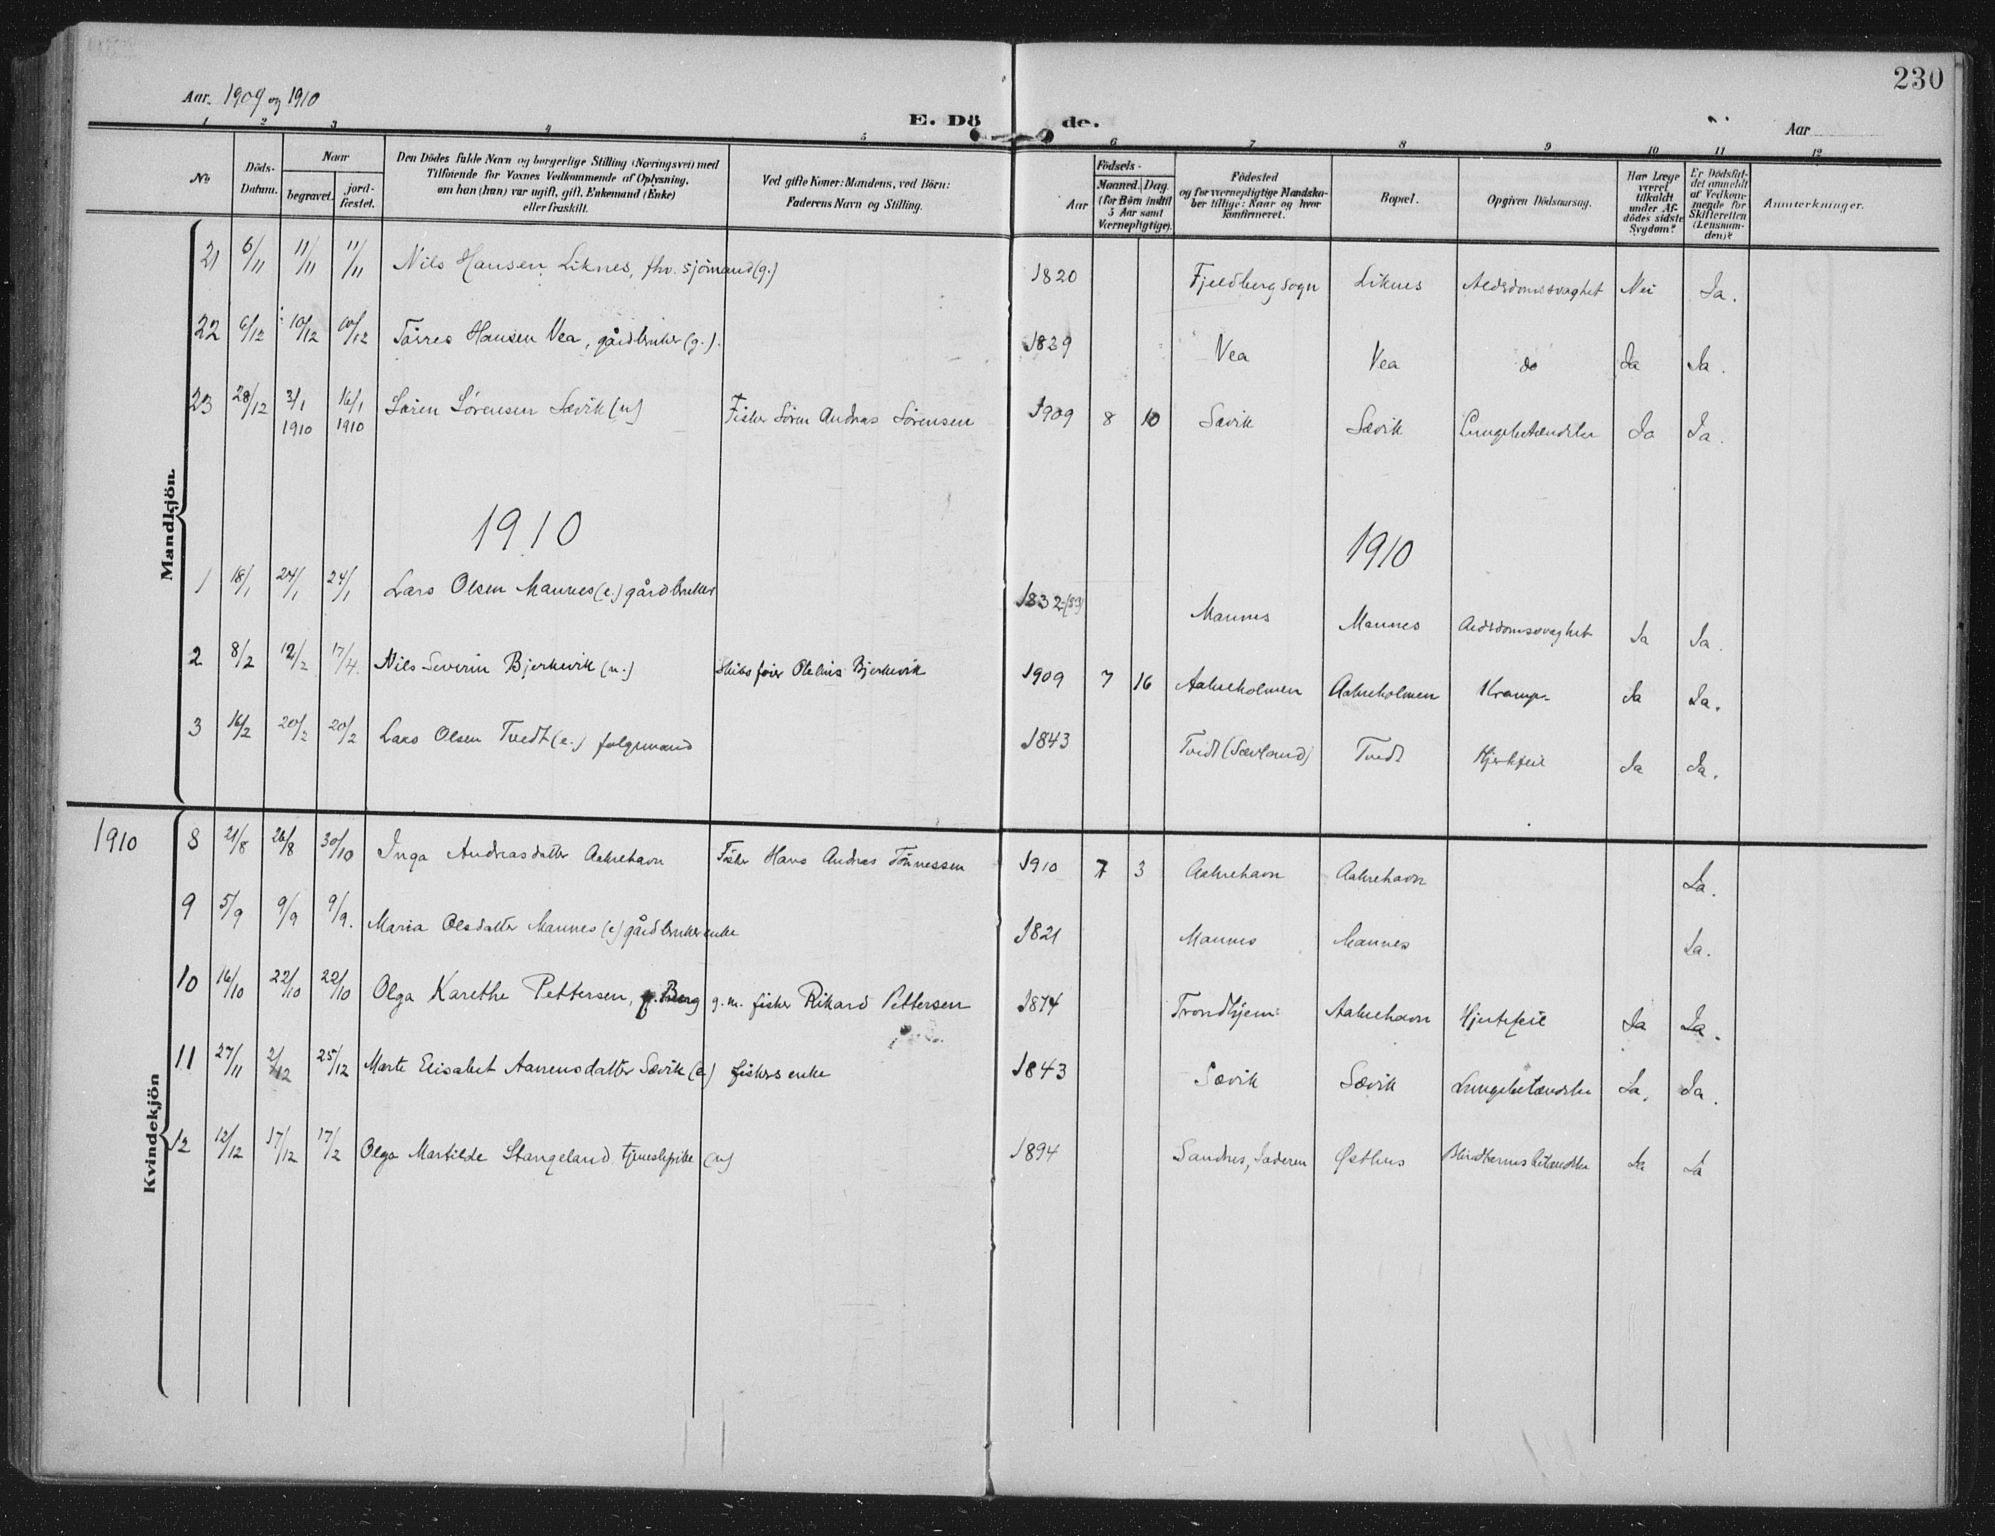 230
Aar. 1909 og 1910
E. Döde.
Aar
1 2 3 4 5 6 7 8 9 10 11 12
No
Döds-Datum.
Naar
begravet.
jord-fæstet.
Den Dödes fulde Navn og borgerlige Stilling (Næringsvei) med
Tilföiende for Voxnes Vedkommende af Oplysning,
om han (hun) var ugift, gift, Enkemand (Enke)
eller fraskilt.
Ved gifte Koner: Mandens, ved Börn:
Faderens Navn og Stilling.
Födsels-
Aar
Maaned. Dag.
(for Börn indtil
5 Aar samt
Værnepligtige).
Födested
og for værnepligtige Mandska-
ber tillige: Naar og hvor
konfirmeret.
Bopæl.
Opgiven Dödsaarsag.
Har Læge
været
tilkaldt
under Af-
dödes sidste
Sygdom?
Er Dödsfal-
det anmeldt
af Vedkom-
mende for
Skifteretten
(Lensman-
den)?
Anmærkninger.
Mandkjön.
21 6/11 11/11 11/11 Nils Hansen Liknes, fhv. sjömand (g.) 1820 Fjeldberg sogn Liknes Alderdomssvaghet Nei Ja.
22 6/12 10/12 10/12 Törres Hansen Vea, gårdbruker (g.). 1829 Vea Vea do Ja Ja.
23 28/12 3/1 1910 16/1 1910 Sören Sörensen Sævik (u) Fisker Sören Andreas Sörensen 1909 8 10 Sævik Sævik Lungebetændelse Ja Ja.
1910 1910
1 18/1 24/1 24/1 Lars Olsen Mannes (e.) gårdbruker 1832 Mannes Mannes Alderdomssvaghet Ja Ja.
2 8/2 12/2 17/4. Nils Severin Bjerkevik (u.) Skibsfører Bjerkevik 1909 7 16 Aakreholmen Aakreholmen Krampe Ja Ja.
3 16/2 20/2 20/2 Lars Olsen Tvedt (e.) folgemand 1843 Tvedt (Sævland) Tvedt Hjertefeil Ja Ja.
Kvindekjön
1910 8 21/8 26/8 30/10 Inga Andreasdatter Aakrehavn Fisker Hans Andreas Tönnessen 1910 7 3 Aakrehavn Aakrehavn Ja.
9 5/9 9/9 9/9. Maria Olsdatter Mannes (e) gårdbrukerenke 1821 Mannes Mannes Ja.
10 16/10 22/10 22/10 Olga Karethe Pettersen, f. Berg g. m. fisker Rikard Pettersen 1874 Trondhjem Aakrehavn Hjertefeil Ja Ja.
11 27/11 2/12 25/12 Marte Elisabet Aanensdatter Sævik (e) fiskers enke 1843 Sævik Sævik Lungebetændelse Ja. Ja.
12 12/12 17/12 17/2 Olga Martilde Stangeland tjenestepike (u) 1894 Sandnes, Jæderen Østhus Blindtarmsbetændelse Ja Ja